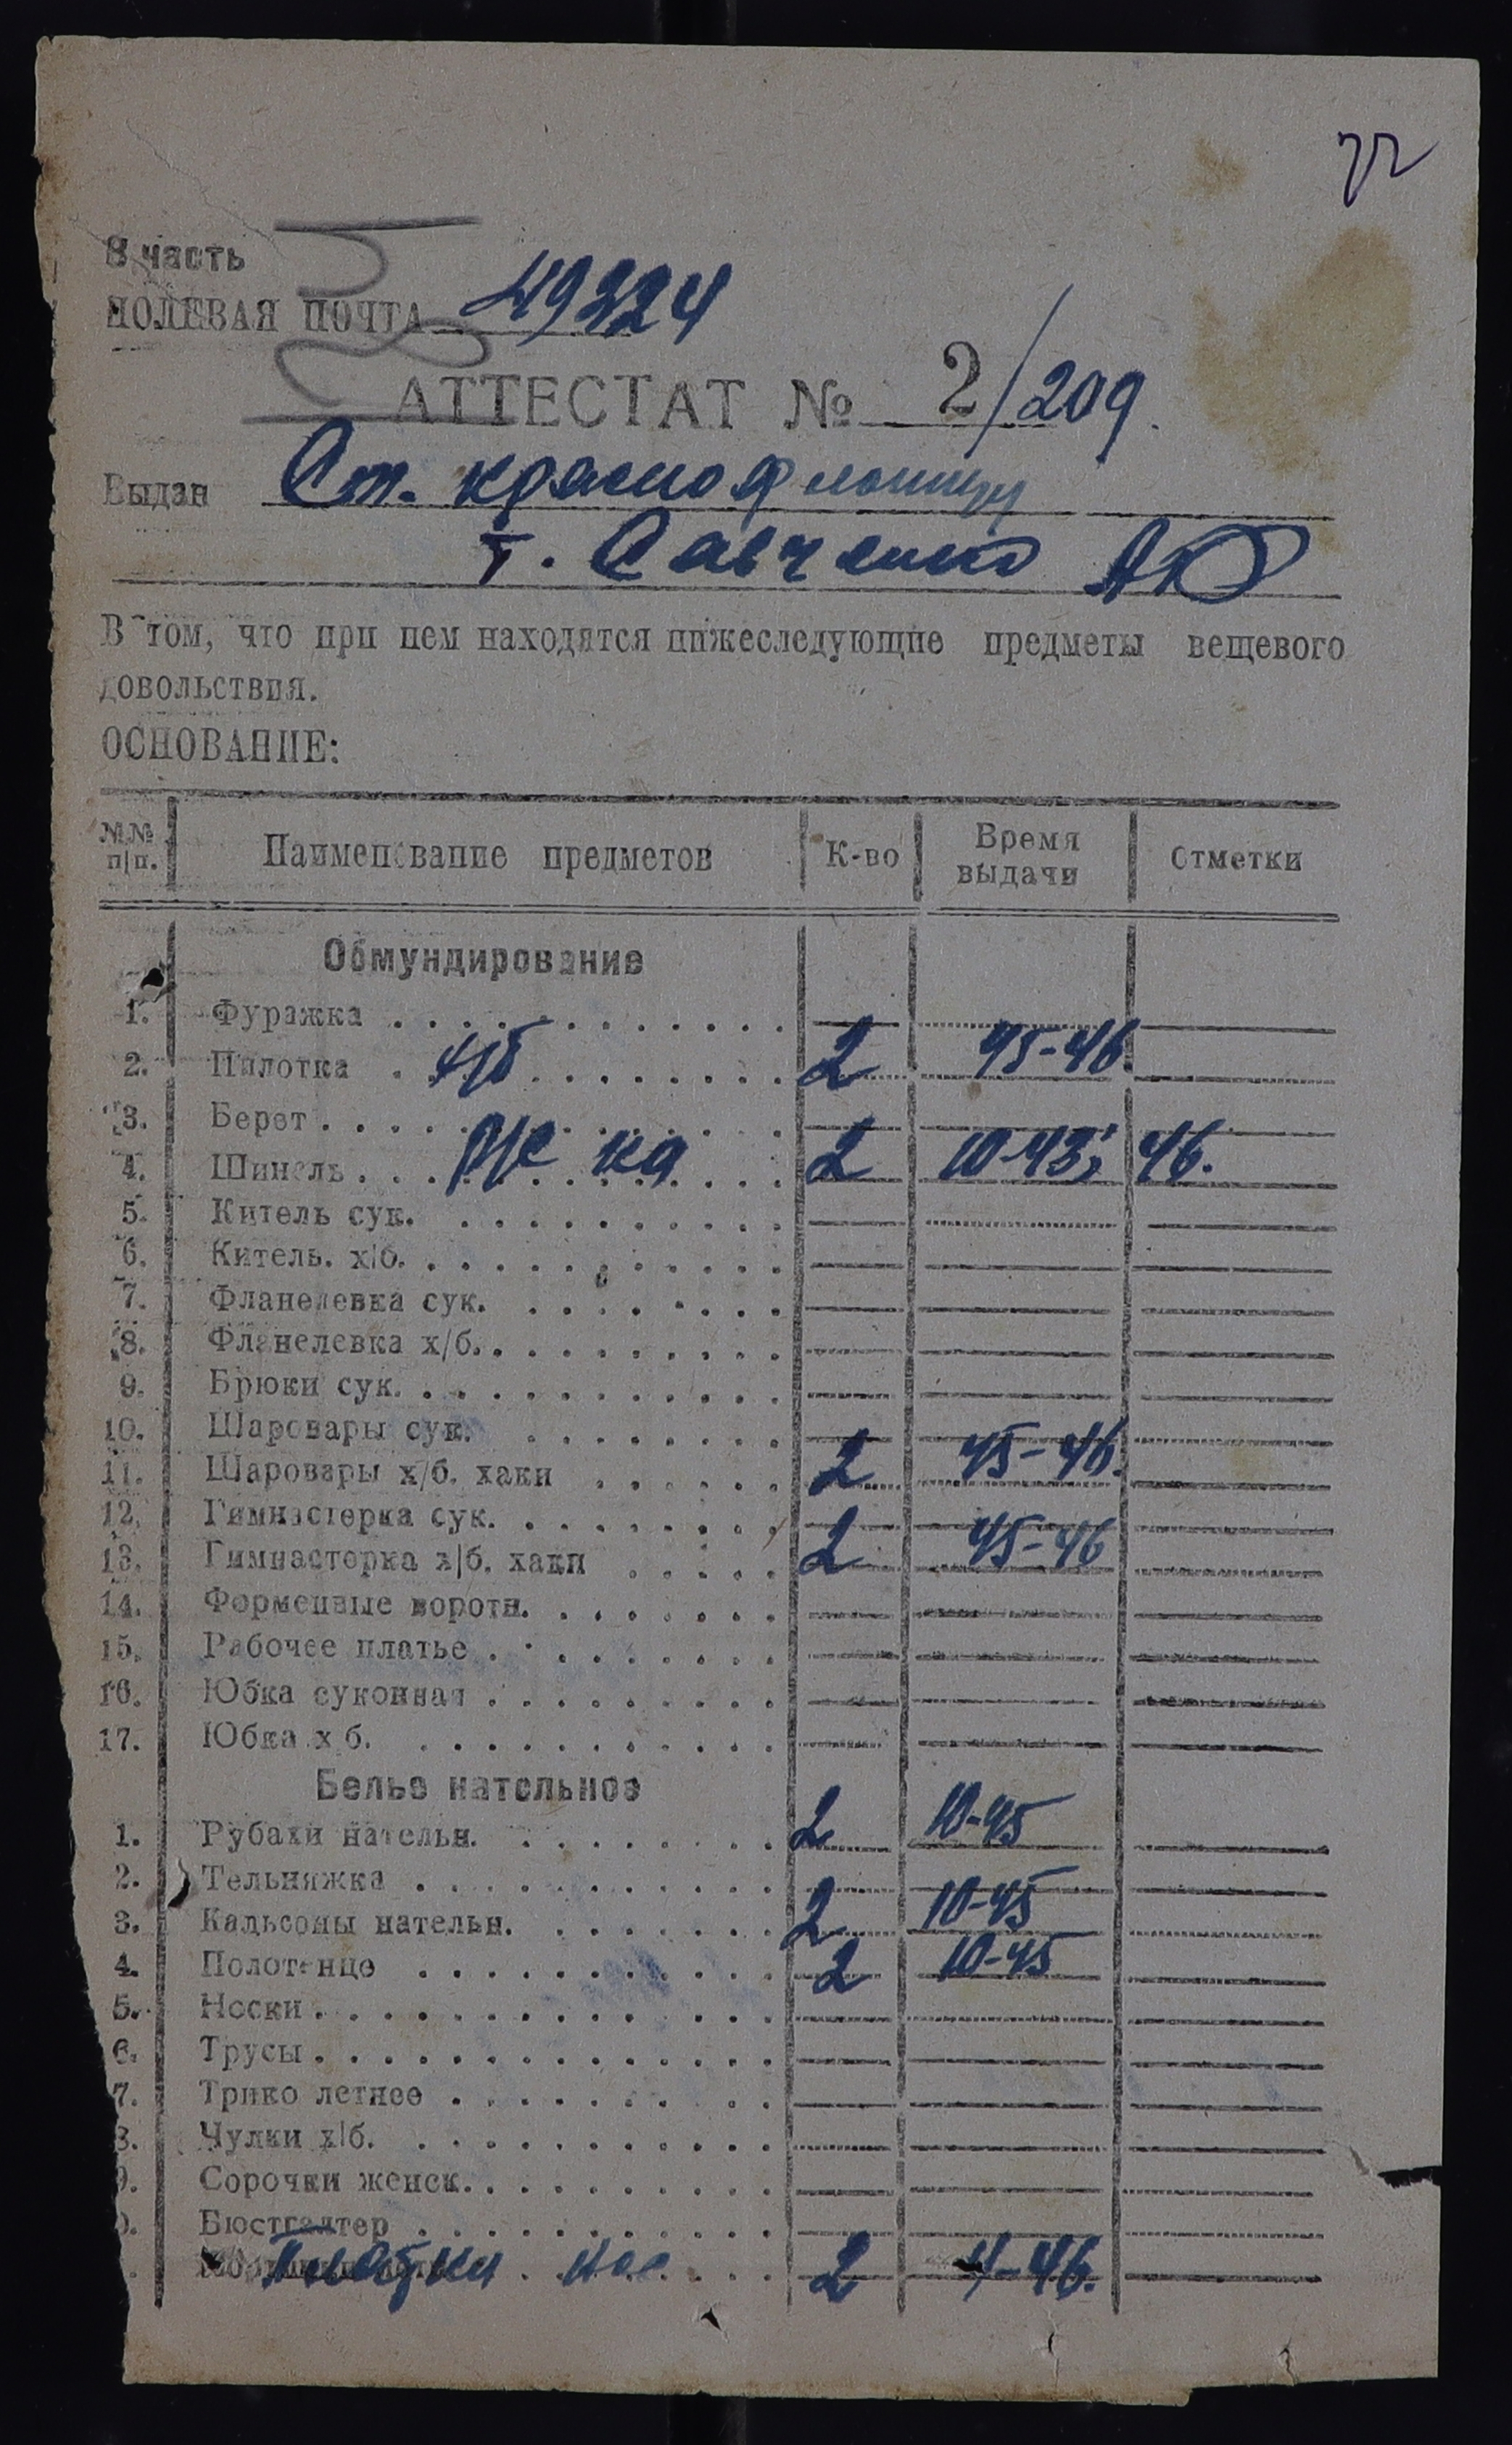 72
В часть
ПОЛЕВАЯ ПОЧТА 49324
АТТЕСТАТ № 2/209.
Выдан Ст. краснофлотцу
т. Савченко АЮ
В том, что при нем находятся нижеследующие предметы вещевого
довольствия.
ОСНОВАНИЕ:
№№ п/п. Наименование предметов К-во Время выдачи Отметки
Обмундирование
1. Фуражка
2. Пилотка х/б 2 45-46
3. Берет
4. Шинель 2 10-43; 46.
5. Китель сук.
6. Китель. х/б.
7. Фланелевка сук.
8. Фланелевка х/б.
9. Брюки сук.
10. Шаровары сук.
11. Шаровары х/б. хаки 2 45-46.
12. Гимнастерка сук.
13. Гимнастерка х/б. хаки 2 45-46
14. Форменные воротн.
15. Рабочее платье
16. Юбка суконная
17. Юбка х б.
Белье нательное
1. Рубахи нательн. 2 10-45
2. Тельняжка
3. Кальсоны нательн. 2 10-45
4. Полотенце 2 10-45
5. Носки
6. Трусы
7. Трико летнее
8. Чулки х/б.
9. Сорочки женск.
Бюстгалтер
Платки нос. 2 4-46.